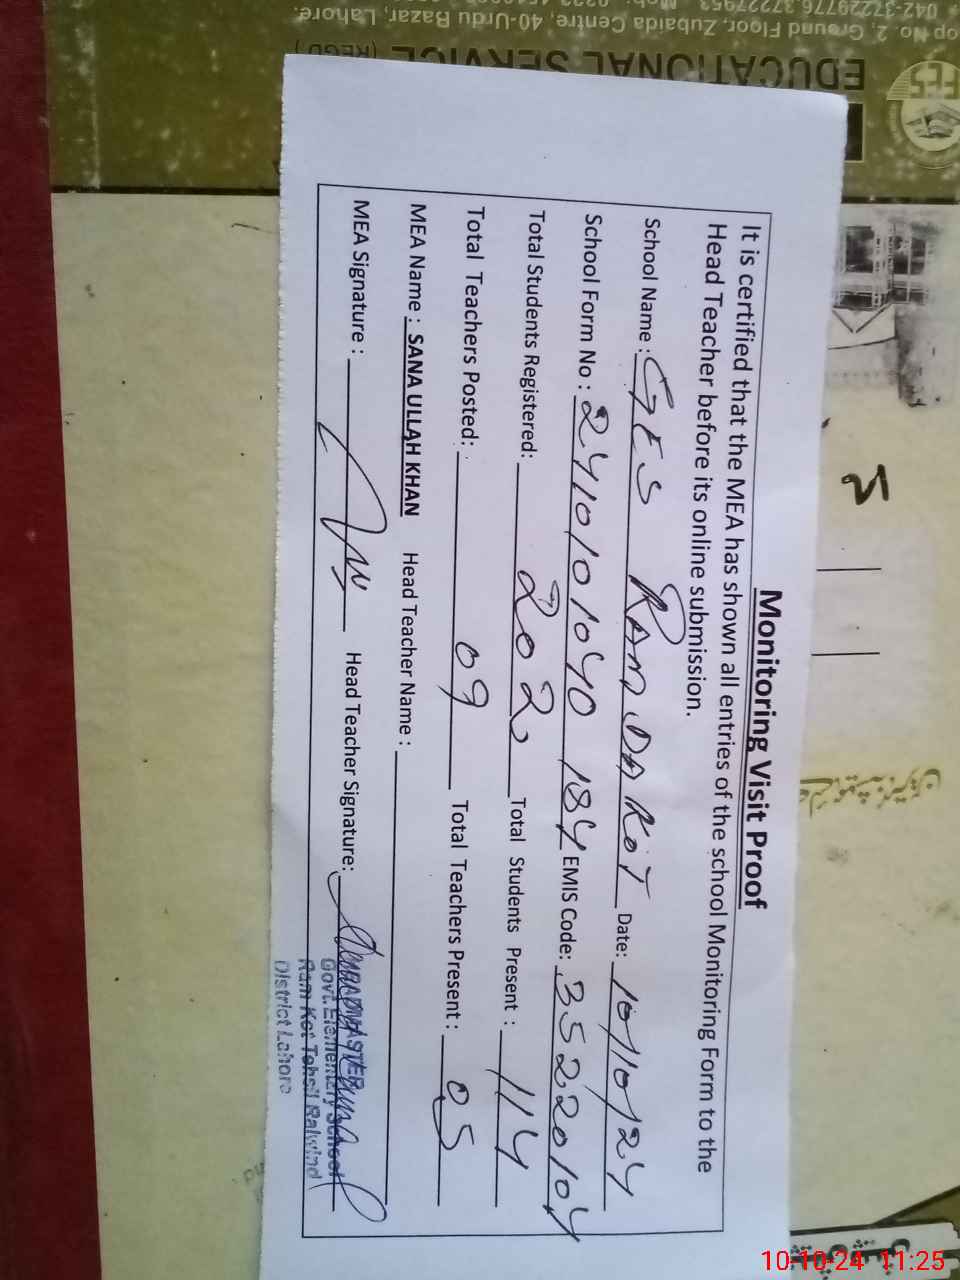 Monitoring Visit Proof
It is certified that the MEA has shown all entries of the school Monitoring Form to the
Head Teacher before its online submission.
School Name : GES RAM DA KOT Date: 10/10/24
School Form No : 2410101040184 EMIS Code: 35220104
Total Students Registered: 202 Total Students Present : 114
Total Teachers Posted: 09 Total Teachers Present : 05
MEA Name : SANA ULLAH KHAN Head Teacher Name :
MEA Signature : Head Teacher Signature:
Govt. Elementary School
Ram Kot Tehsil Raiwind
District Lahore
EDUCATIONAL SERVICE (REGD)
op No. 2, Ground Floor, Zubaida Centre, 40-Urdu Bazar, Lahore.
042-37229776, 37227953
10-10-24 11:25